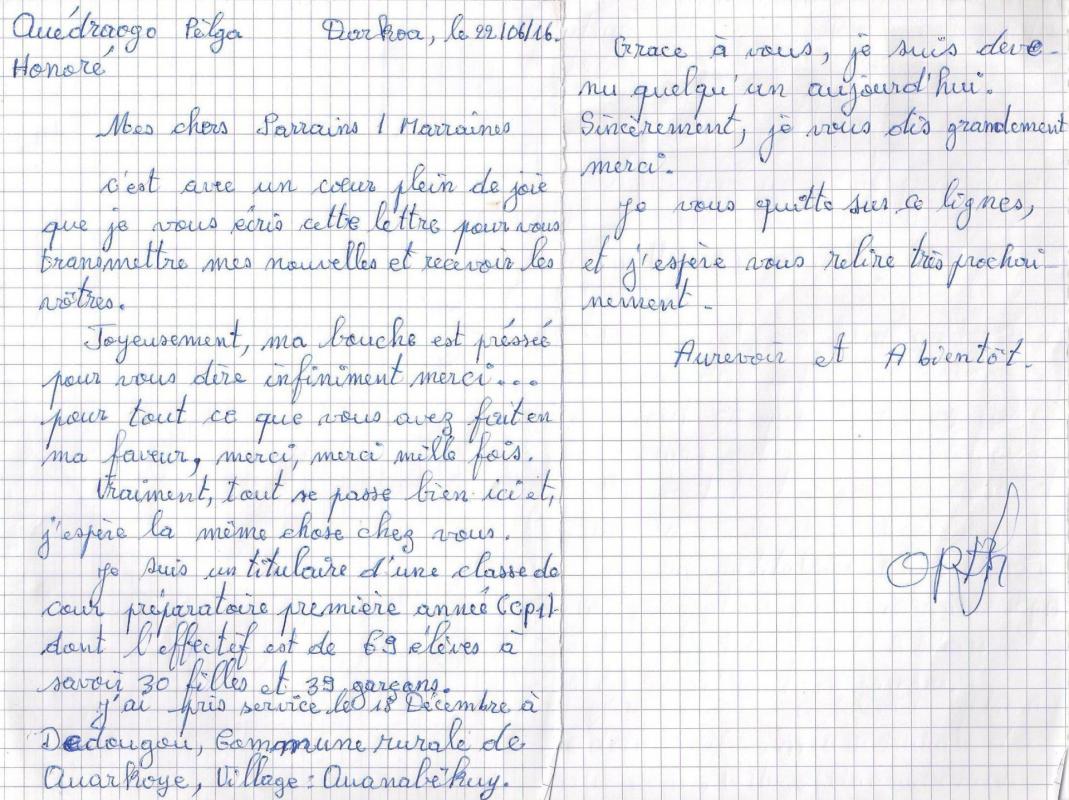 Ouédraogo Pêlga Darkoa, le 22/06/16.
Honoré
Mes chers Parrains / Marraines
c'est avec un cœur plein de joie
que je vous écris cette lettre pour vous
transmettre mes nouvelles et recevoir les
vôtres.
Joyeusement, ma bouche est préssée
pour vous dire infiniment merci...
pour tout ce que vous avez fait en
ma faveur, merci, merci mille fois.
Vraiment, tout se passe bien ici et,
j'espère la même chose chez vous.
Je suis un titulaire d'une classe de
cour préparatoire première année (CP1)
dont l'effectif est de 69 élèves à
savoir 30 filles et 39 garçons.
J'ai pris service le 18 Décembre à
Dedougou, Commune rurale de
Ouarkoye, Village : Ouanabékuy.
Grace à vous, je suis deve-
nu quelqu'un aujourd'hui.
Sincèrement, je vous dis grandement
merci.
Je vous quitte sur ce lignes,
et j'espère vous relire très prochai-
nement.
Aurevoir et A bientôt.